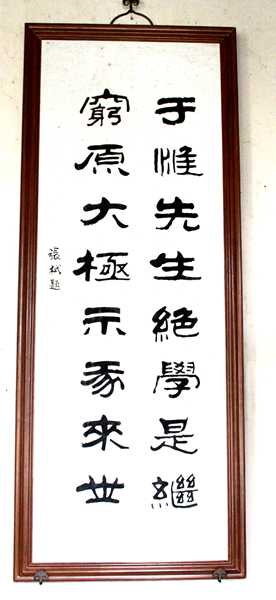 于惟先生絕學是繼
窮原大極示我來世
張栻題